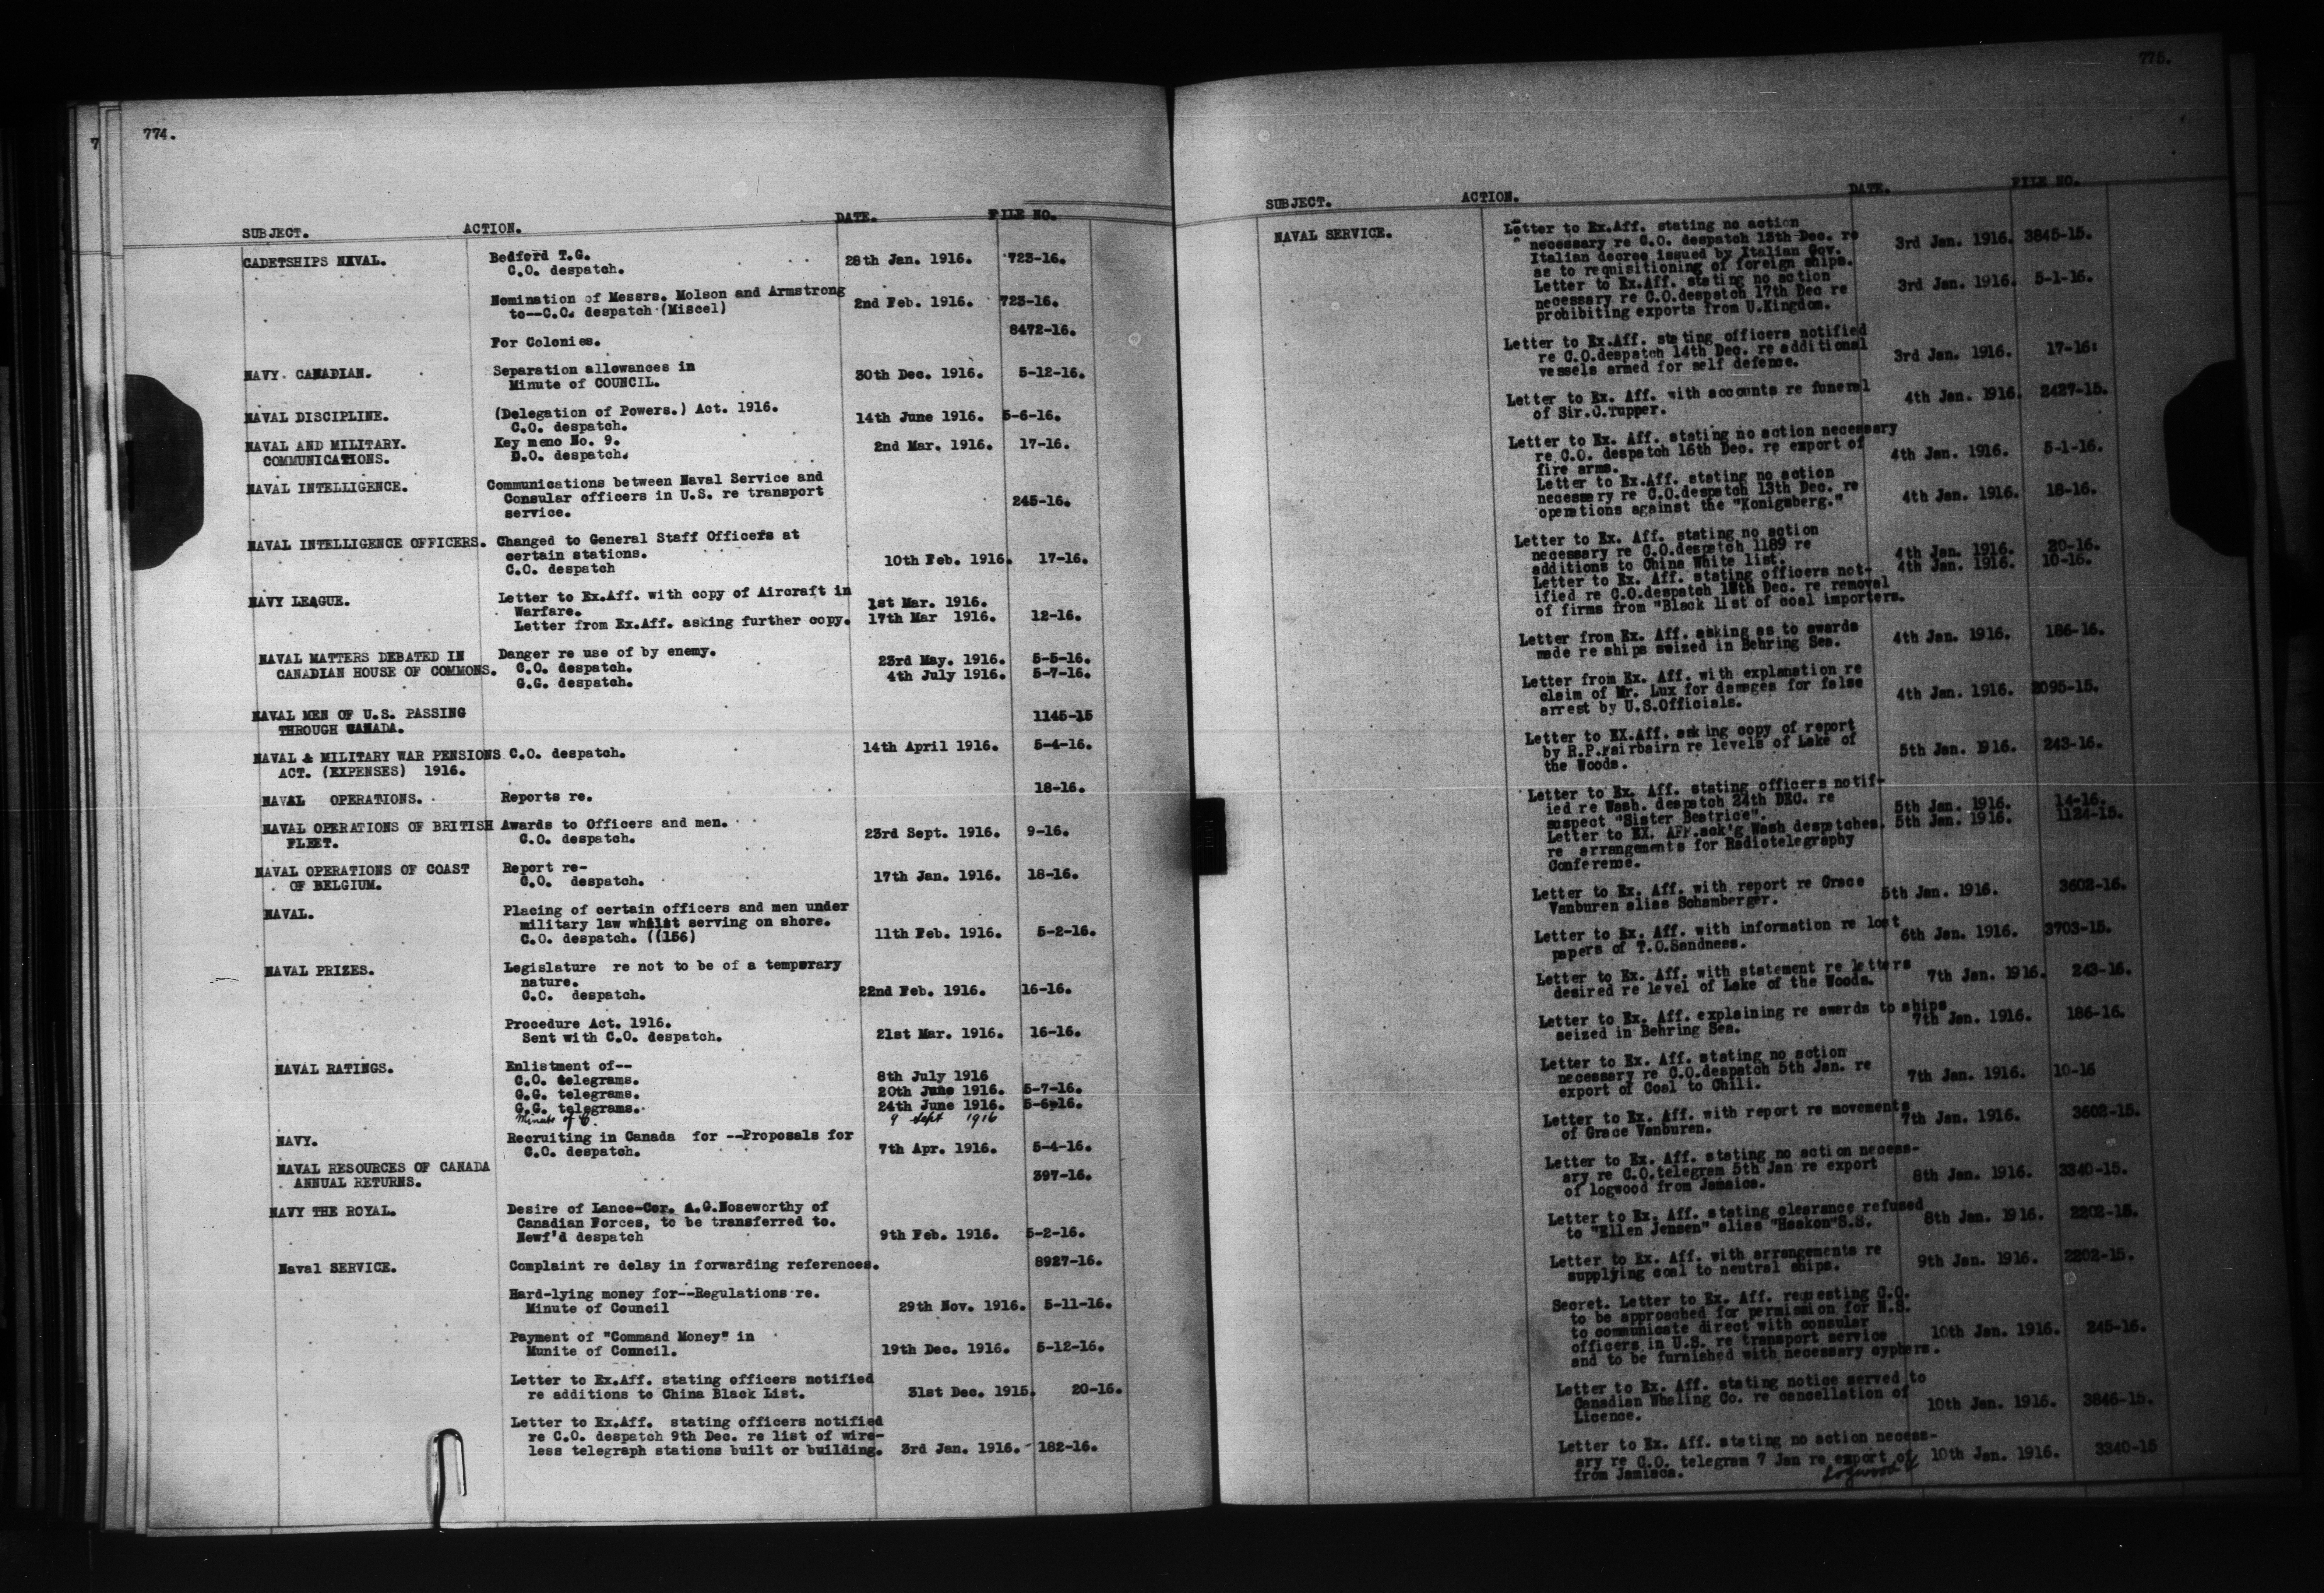 7
774.
SUBJECT. ACTION. DATE. FILE NO.
CADETSHIPS NAVAL. Bedford T.G.
C.O. despatch. 28th Jan. 1916. 723-16.
Nomination of Messrs. Molson and Armstrong
to--C.O. despatch (Miscel) 2nd Feb. 1916. 723-16.
8472-16.
For Colonies.
NAVY CANADIAN. Separation allowances in
Minute of COUNCIL. 30th Dec. 1916. 5-12-16.
NAVAL DISCIPLINE. (Delegation of Powers.) Act. 1916.
C.O. despatch. 14th June 1916. 5-6-16.
NAVAL AND MILITARY. Key memo No. 9.
COMMUNICATIONS. D.O. despatch. 2nd Mar. 1916. 17-16.
NAVAL INTELLIGENCE. Communications between Naval Service and
Consular officers in U.S. re transport
service. 245-16.
NAVAL INTELLIGENCE OFFICERS. Changed to General Staff Officers at
certain stations.
C.O. despatch 10th Feb. 1916. 17-16.
NAVY LEAGUE. Letter to Ex.Aff. with copy of Aircraft in
Warfare. 1st Mar. 1916.
Letter from Ex.Aff. asking further copy. 17th Mar 1916. 12-16.
NAVAL MATTERS DEBATED IN Danger re use of by enemy.
CANADIAN HOUSE OF COMMONS. C.O. despatch. 23rd May. 1916. 5-5-16.
G.G. despatch. 4th July 1916. 5-7-16.
NAVAL MEN OF U.S. PASSING
THROUGH CANADA. 1145-15
NAVAL & MILITARY WAR PENSIONS C.O. despatch. 14th April 1916. 5-4-16.
ACT. (EXPENSES) 1916.
NAVAL OPERATIONS. Reports re. 18-16.
NAVAL OPERATIONS OF BRITISH Awards to Officers and men.
FLEET. C.O. despatch. 23rd Sept. 1916. 9-16.
NAVAL OPERATIONS OF COAST Report re-
OF BELGIUM. C.O. despatch. 17th Jan. 1916. 18-16.
NAVAL. Placing of certain officers and men under
military law whilst serving on shore.
C.O. despatch. ((156) 11th Feb. 1916. 5-2-16.
NAVAL PRIZES. Legislature re not to be of a temporary
nature.
C.O. despatch. 22nd Feb. 1916. 16-16.
Procedure Act. 1916.
Sent with C.O. despatch. 21st Mar. 1916. 16-16.
NAVAL RATINGS. Enlistment of--
C.O. telegrams. 8th July 1916
G.G. telegrams. 20th June 1916. 5-7-16.
G.G. telegrams. 24th June 1916. 5-6-16.
Minute of C. 9 Sept 1916
NAVY. Recruiting in Canada for --Proposals for
C.O. despatch. 7th Apr. 1916. 5-4-16.
NAVAL RESOURCES OF CANADA
ANNUAL RETURNS. 397-16.
NAVY THE ROYAL. Desire of Lance-Cor. A.G.Noseworthy of
Canadian Forces, to be transferred to.
Newf'd despatch 9th Feb. 1916. 5-2-16.
Naval SERVICE. Complaint re delay in forwarding references. 8927-16.
Hard-lying money for--Regulations re.
Minute of Council 29th Nov. 1916. 5-11-16.
Payment of "Command Money" in
Munite of Council. 19th Dec. 1916. 5-12-16.
Letter to Ex.Aff. stating officers notified
re additions to China Black List. 31st Dec. 1915. 20-16.
Letter to Ex.Aff. stating officers notified
re C.O. despatch 9th Dec. re list of wire-
less telegraph stations built or building. 3rd Jan. 1916. 182-16.
775.
SUBJECT. ACTION. DATE. FILE NO.
NAVAL SERVICE. Letter to Ex.Aff. stating no action
necessary re C.O. despatch 13th Dec. re
Italian decree issued by Italian Gov. 3rd Jan. 1916. 3845-15.
as to requisitioning of foreign ships.
Letter to Ex.Aff. stating no action
necessary re C.O.despatch 17th Dec re 3rd Jan. 1916. 5-1-16.
prohibiting exports from U.Kingdom.
Letter to Ex.Aff. stating officers notified
re C.O.despatch 14th Dec. re additional
vessels armed for self defence. 3rd Jan. 1916. 17-16:
Letter to Ex. Aff. with accounts re funeral
of Sir.C.Tupper. 4th Jan. 1916. 2427-15.
Letter to Ex. Aff. stating no action necessary
re C.O. despatch 16th Dec. re export of
fire arms. 4th Jan. 1916. 5-1-16.
Letter to Ex.Aff. stating no action
necessary re C.O.despatch 13th Dec. re
operations against the "Konigsberg." 4th Jan. 1916. 18-16.
Letter to Ex. Aff. stating no action
necessary re C.O.despatch 1189 re
additions to China White list. 4th Jan. 1916. 20-16.
Letter to Ex. Aff. stating officers not- 4th Jan. 1916. 10-16.
ified re C.O.despatch 18th Dec. re removal
of firms from "Black list of coal importers.
Letter from Ex. Aff. asking as to awards
made re ships seized in Behring Sea. 4th Jan. 1916. 186-16.
Letter from Ex. Aff. with explanation re
claim of Mr. Lux for damages for false
arrest by U.S.Officials. 4th Jan. 1916. 2095-15.
Letter to EX.Aff. asking copy of report
by R.P.Fairbairn re levels of Lake of
the Woods. 5th Jan. 1916. 243-16.
Letter to Ex. Aff. stating officers notif-
ied re Wash. despatch 24th DEC. re
suspect "Sister Beatrice". 5th Jan. 1916. 14-16.
Letter to EX. AFF.ack'g Wash despatches. 5th Jan. 1916. 1124-15.
re arrangements for Radiotelegraphy
Conference.
Letter to Ex. Aff. with report re Grace
Vanburen alias Schamberger. 5th Jan. 1916. 3602-16.
Letter to Ex. Aff. with information re lost
papers of T.O.Sandness. 6th Jan. 1916. 3703-15.
Letter to Ex. Aff. with statement re letters
desired re level of Lake of the Woods. 7th Jan. 1916. 243-16.
Letter to Ex. Aff. explaining re awards to ships
seized in Behring Sea. 7th Jan. 1916. 186-16.
Letter to Ex. Aff. stating no action
necessary re C.O.despatch 5th Jan. re
export of Coal to Chili. 7th Jan. 1916. 10-16
Letter to Ex. Aff. with report re movements
of Grace Vanburen. 7th Jan. 1916. 3602-15.
Letter to Ex. Aff. stating no action necess-
ary re C.O.telegram 5th Jan re export
of logwood from Jamaica. 8th Jan. 1916. 3340-15.
Letter to Ex. Aff. stating clearance refused
to "Ellen Jensen" alias "Haakon"S.S. 8th Jan. 1916. 2202-15.
Letter to Ex. Aff. with arrangements re
supplying coal to neutral ships. 9th Jan. 1916. 2202-15.
Secret. Letter to Ex. Aff. requesting C.O.
to be approached for permission for N.S.
to communicate direct with consular
officers in U.S. re transport service 10th Jan. 1916. 245-16.
and to be furnished with necessary cyphers.
Letter to Ex. Aff. stating notice served to
Canadian Whaling Co. re cancellation of
Licence. 10th Jan. 1916. 3846-15.
Letter to Ex. Aff. stating no action necess-
ary re C.O. telegram 7 Jan re export of 10th Jan. 1916. 3340-15
from Jamiaca. Logwood